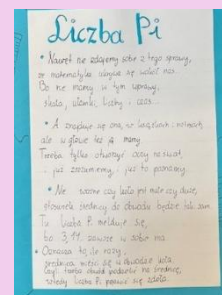 Liczba Pi
• Nawet nie zdajemy sobie z tego sprawy,
że matematyka ukrywa się wokół nas.
Bo nie mamy w tym wprawy,
skala, ułamki, liczby i czas.
• A znajduje się ona, w książkach i
ale w głowie też ją mamy
Trzeba tylko otworzyć oczy na świat,
już zrozumiemy i już to poznamy.
• Nie ważne czy koło jest małe czy duże,
stosunek średnicy do obwodu będzie taki sam.
Tu liczba π melduje się,
bo 3,14 zawsze w sobie ma.
• Oznacza to ile razy,
średnica mieści się w obwodzie koła.
Czyli trzeba obwód podzielić na średnicę,
wtedy liczba Pi pojawić się zdoła.